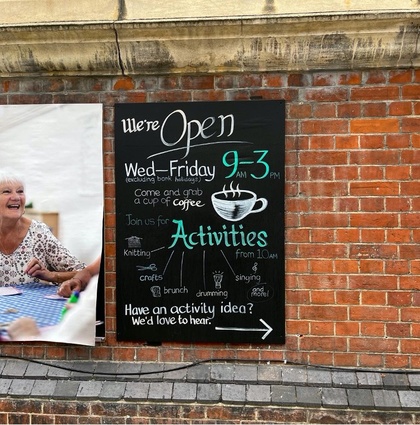 We're Open
Wed—Friday 9-3
(excluding bank holidays) AM PM
Come and grab
a cup of coffee
Join us for
Activities
Knitting from 10AM
crafts singing
brunch drumming and more!
Have an activity idea?
We'd love to hear.